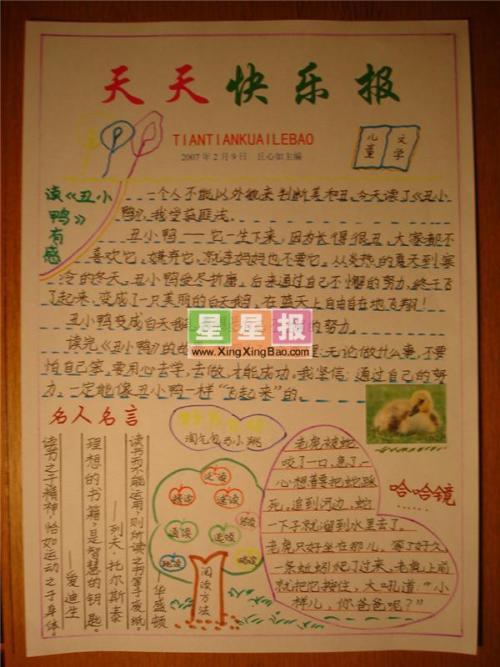 天天快乐报
TIANTIANKUAILEBAO
2007年2月9日 丘心如主编
儿童
文学
读《丑小鸭》有感
一个人不能以外貌来判断美和丑。今天读了《丑小
鸭》,我受益匪浅。
丑小鸭——它一生下来,因为长得很丑,大家都不
喜欢它,嫌弃它,就连妈妈也不要它。从炎热的夏天到寒
冷的冬天,丑小鸭受尽折磨。后来通过自己不懈的努力,终于飞
了起来,变成了一只美丽的白天鹅,在蓝天上自由自在地飞翔!
丑小鸭变成白天鹅
的努力。
读完《丑小鸭》的
无论做什么事,不要
怕自己笨,要用心去学,去做,才能成功。我坚信,通过自己的努
力,一定能像丑小鸭一样“飞起来”的。
星星报
www.XingXingBao.com
名人名言
读书而不能运用,则所读之书等于废纸。
——华盛顿
理想的书籍,是智慧的钥匙。
——列夫·托尔斯泰
读书之于精神,恰如运动之于身体。
——爱迪生
淘气包马小跳
速读
阅读方法
哈哈镜
老虎被蛇
咬了一口,急了一
心想着要把蛇踩
死,追到河边,蛇
一下子就溜到水里去了。
老虎只好坐在那儿,等了好久,
一条蚯蚓爬了过来,老虎上前
就把它按住,大吼道:“小
样儿,你爸爸呢?”